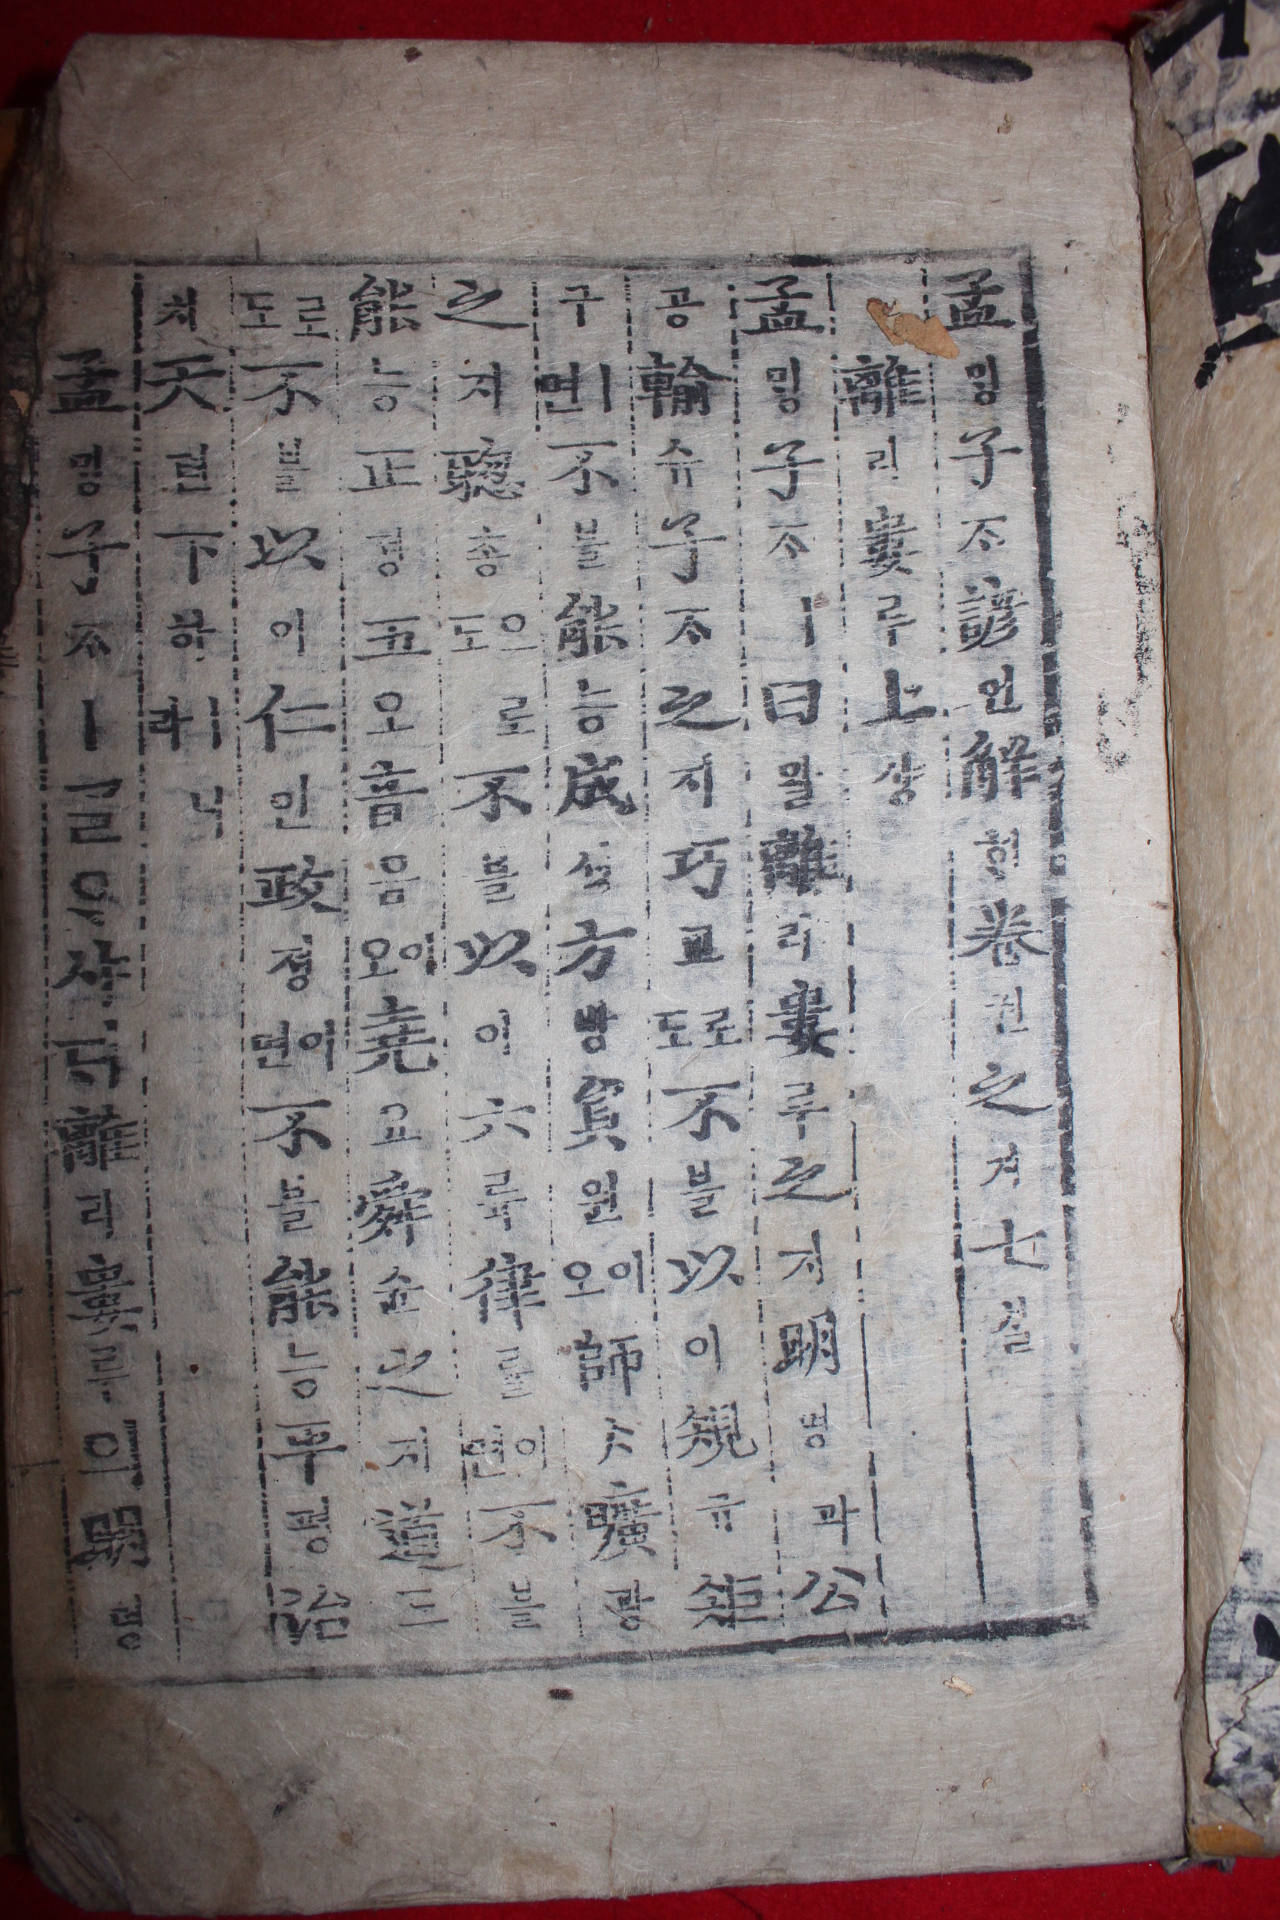 孟밍子ᄌᆞ諺언解ᄒᆡ卷권之지七칠
離리婁루上샹
孟밍子ᄌᆞㅣ曰왈離리婁루之지明명과公
공輸슈子ᄌᆞ之지巧교로도不블以이規규矩
구ㅣ면不블能능成셩方방員원이오師ᄉᆞ曠광
之지聰총으로도不블以이六륙律률이면不블
能능正졍五오音음이오堯요舜슌之지道도
로도不블以이仁인政졍이면不블能능平평治
치天텬下하ㅣ라니
孟밍子ᄌᆞㅣᄀᆞᆯᄋᆞ샤ᄃᆡ離리婁루의明명